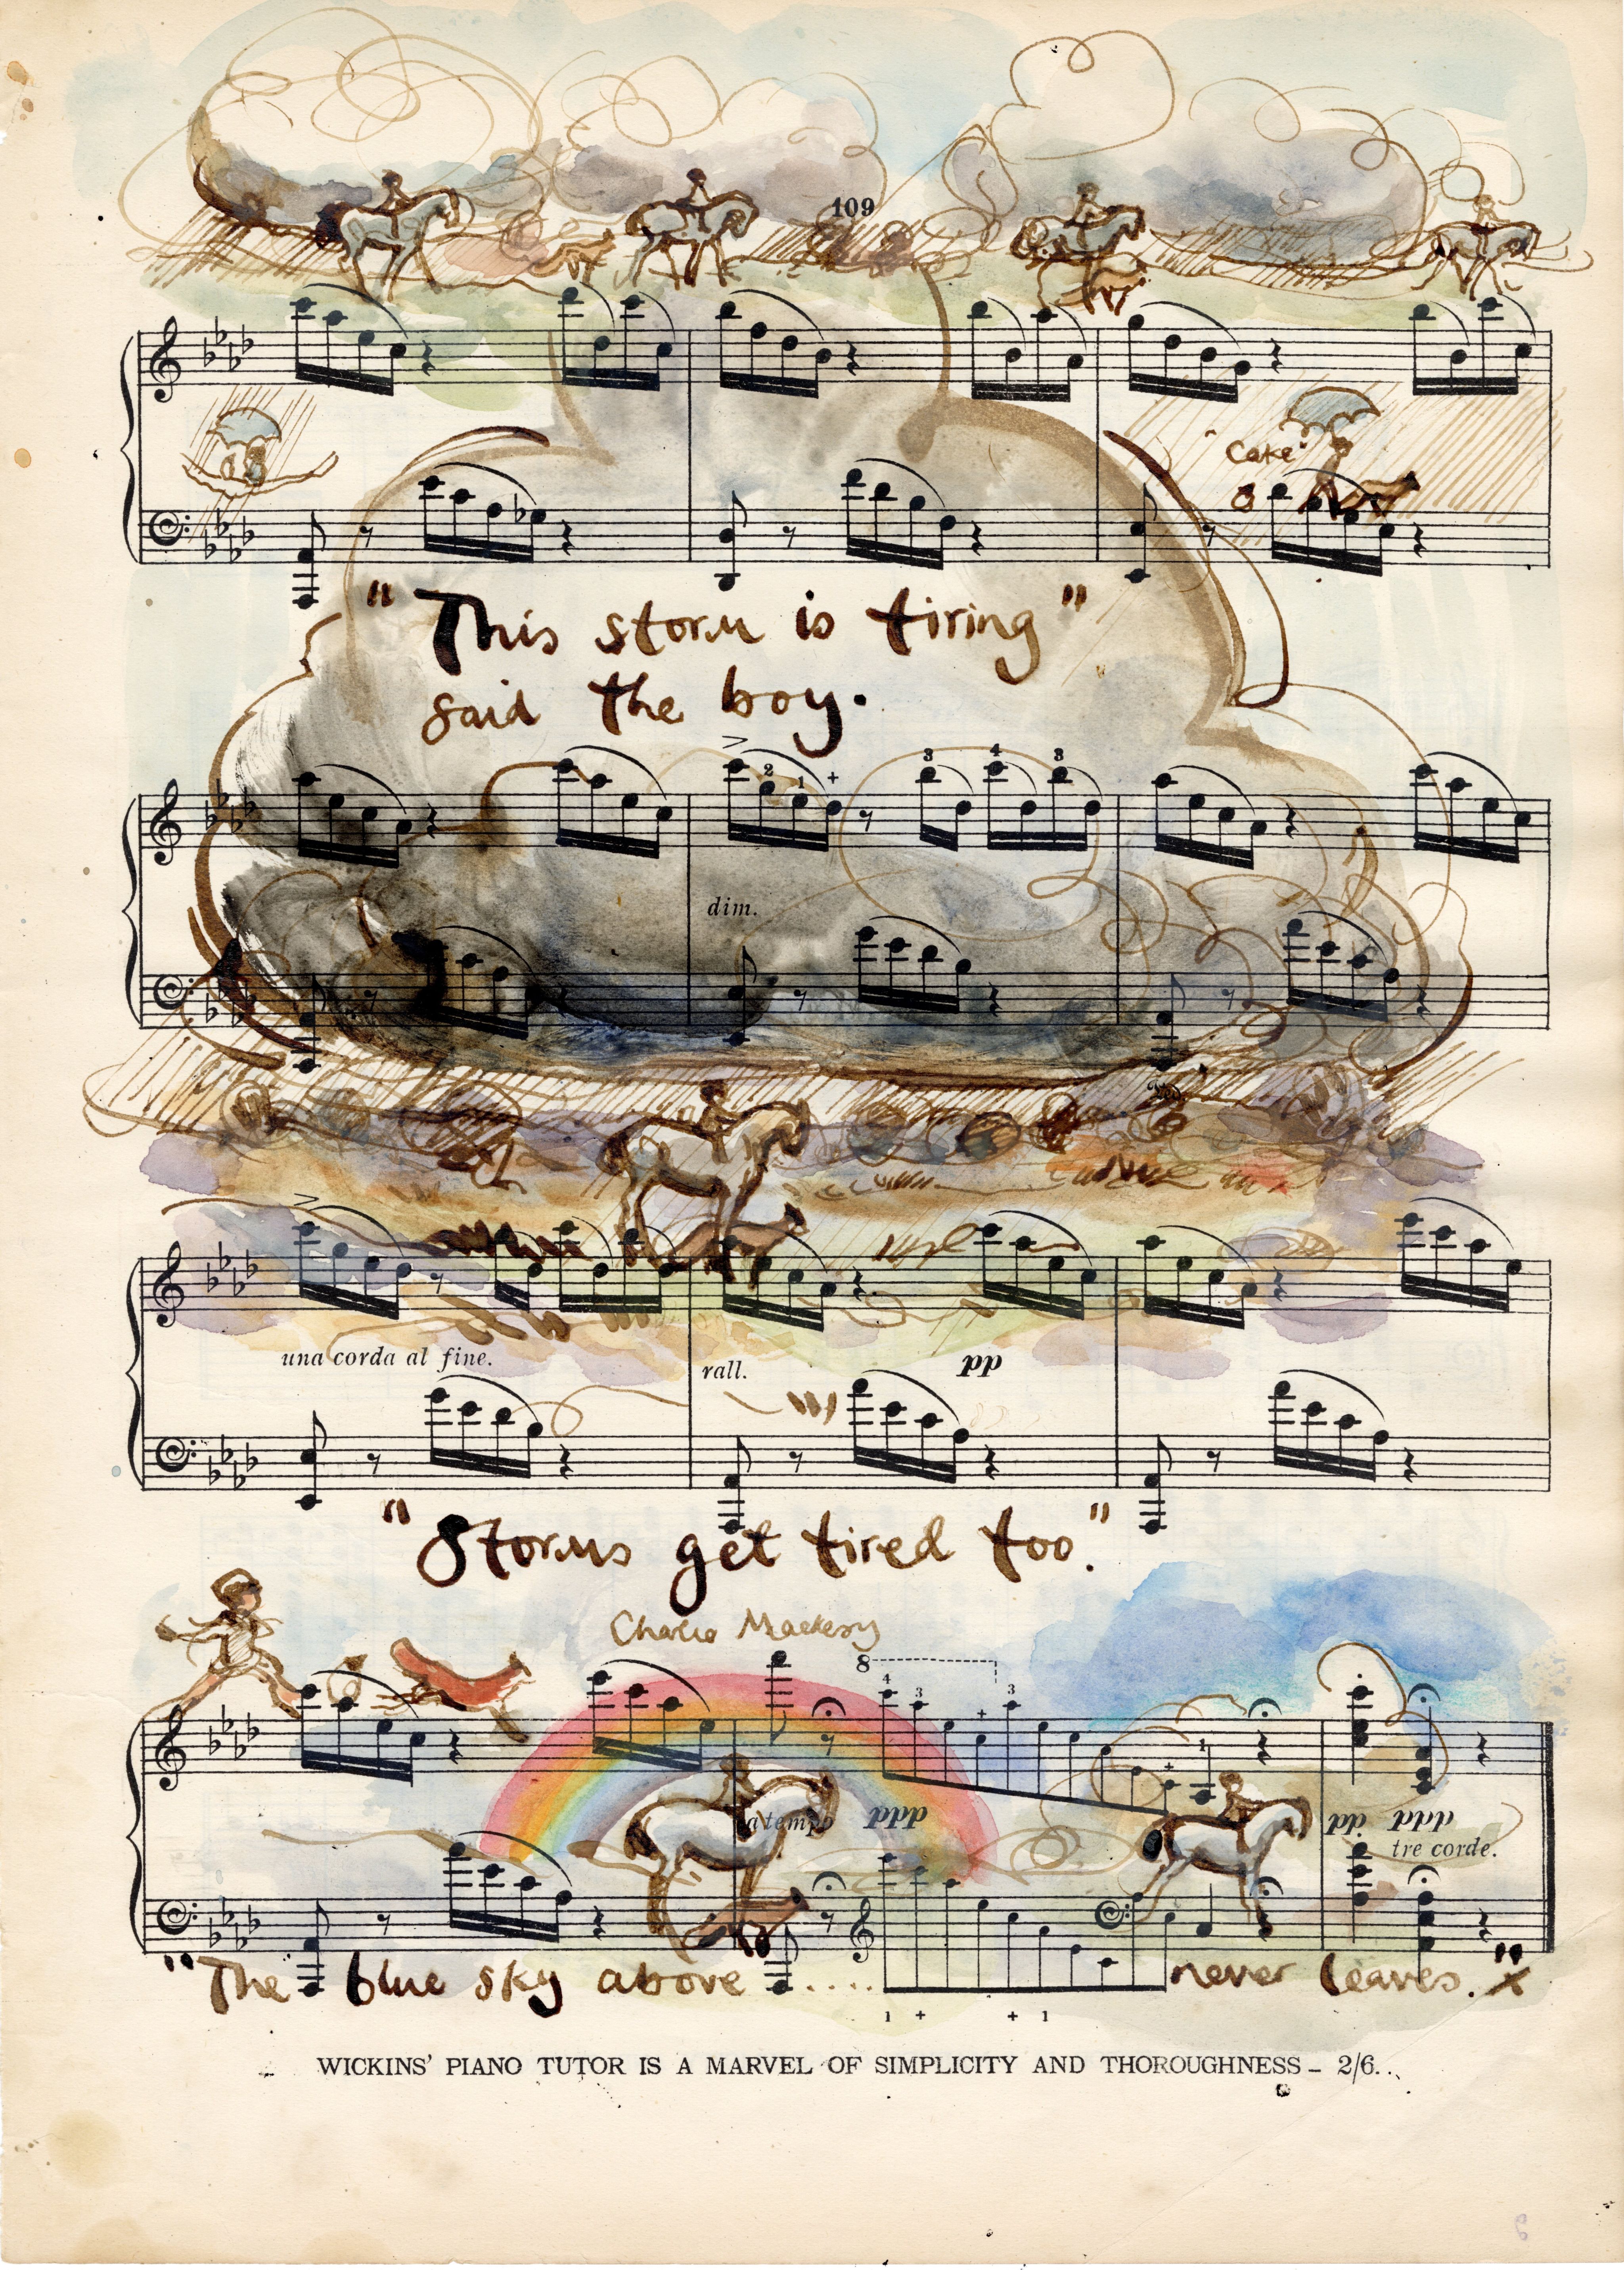 109
"Cake"
"This storm is tiring"
said the boy.
> 2 1 + 3 4 3
dim.
Ped.
>
una corda al fine.
rall.
pp
"Storms get tired too."
Charlie Mackesy
8
4 3 + 3 + 1
a tempo
ppp
pp ppp
tre corde.
"The blue sky above ..... never leaves." x
1 + + 1
WICKINS' PIANO TUTOR IS A MARVEL OF SIMPLICITY AND THOROUGHNESS – 2/6.